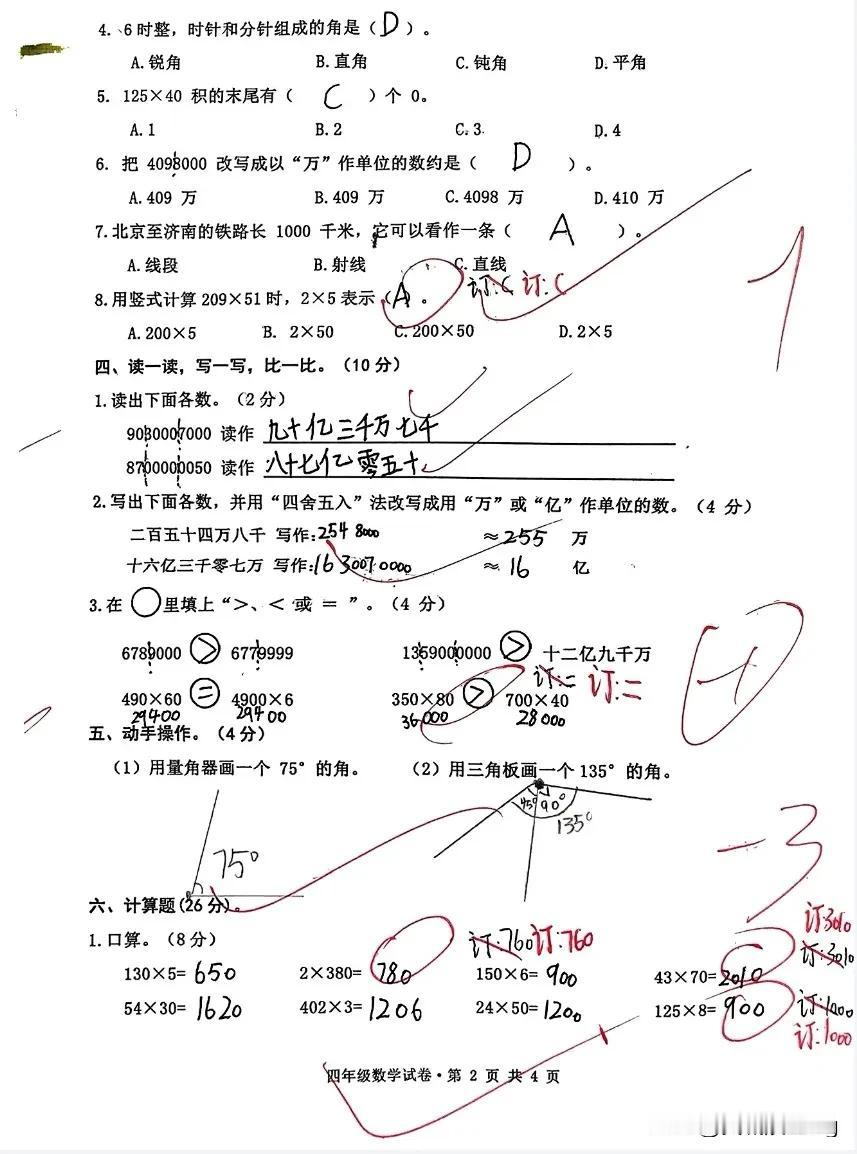 4. 6时整，时针和分针组成的角是（D）。
A.锐角 B.直角 C.钝角 D.平角
5. 125×40 积的末尾有（ C ）个 0。
A.1 B.2 C.3 D.4
6. 把 4098000 改写成以“万”作单位的数约是（ D ）。
A.409 万 B.409 万 C.4098 万 D.410 万
7.北京至济南的铁路长 1000 千米，它可以看作一条（ A ）。
A.线段 B.射线 C.直线
8.用竖式计算 209×51 时，2×5 表示（A）。 订:C 订:C
A.200×5 B. 2×50 C.200×50 D.2×5
1
四、读一读，写一写，比一比。（10 分）
1.读出下面各数。（2 分）
9030007000 读作 九十亿三千万七千
8700000050 读作 八十七亿零五十
2.写出下面各数，并用“四舍五入”法改写成用“万”或“亿”作单位的数。（4 分）
二百五十四万八千 写作:2548000 ≈255 万
十六亿三千零七万 写作:1630070000 ≈16 亿
3.在 ○里填上“>、< 或 = ”。（4 分）
6789000 > 6779999 1359000000 > 十二亿九千万
订:= 订:=
490×60 = 4900×6 350×80 > 700×40
29400 29400 36000 28000
-1
五、动手操作。（4分）
（1）用量角器画一个 75°的角。 （2）用三角板画一个 135°的角。
75° 45° 90° 135°
-3
六、计算题(26 分)。
1.口算。（8 分） 订:760 订:760 订3010 订:3010
130×5= 650 2×380= 780 150×6= 900 43×70= 2010
54×30= 1620 402×3= 1206 24×50= 1200 125×8= 900 订:1000
订:1000
四年级数学试卷·第 2 页 共 4 页